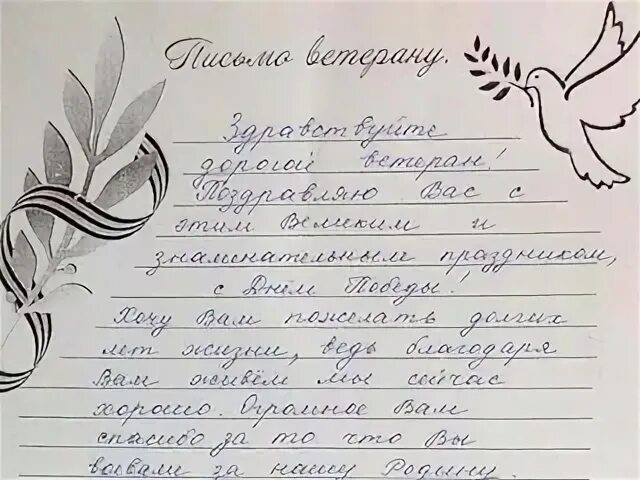 Письмо ветерану.
Здравствуйте
дорогой ветеран!
Поздравляю Вас с
этим Великим и
знаменательным праздником,
с Днём Победы!
Хочу Вам пожелать долгих
лет жизни, ведь благодаря
Вам живём мы сейчас
хорошо. Огромное Вам
спасибо за то что Вы
воевали за нашу Родину.